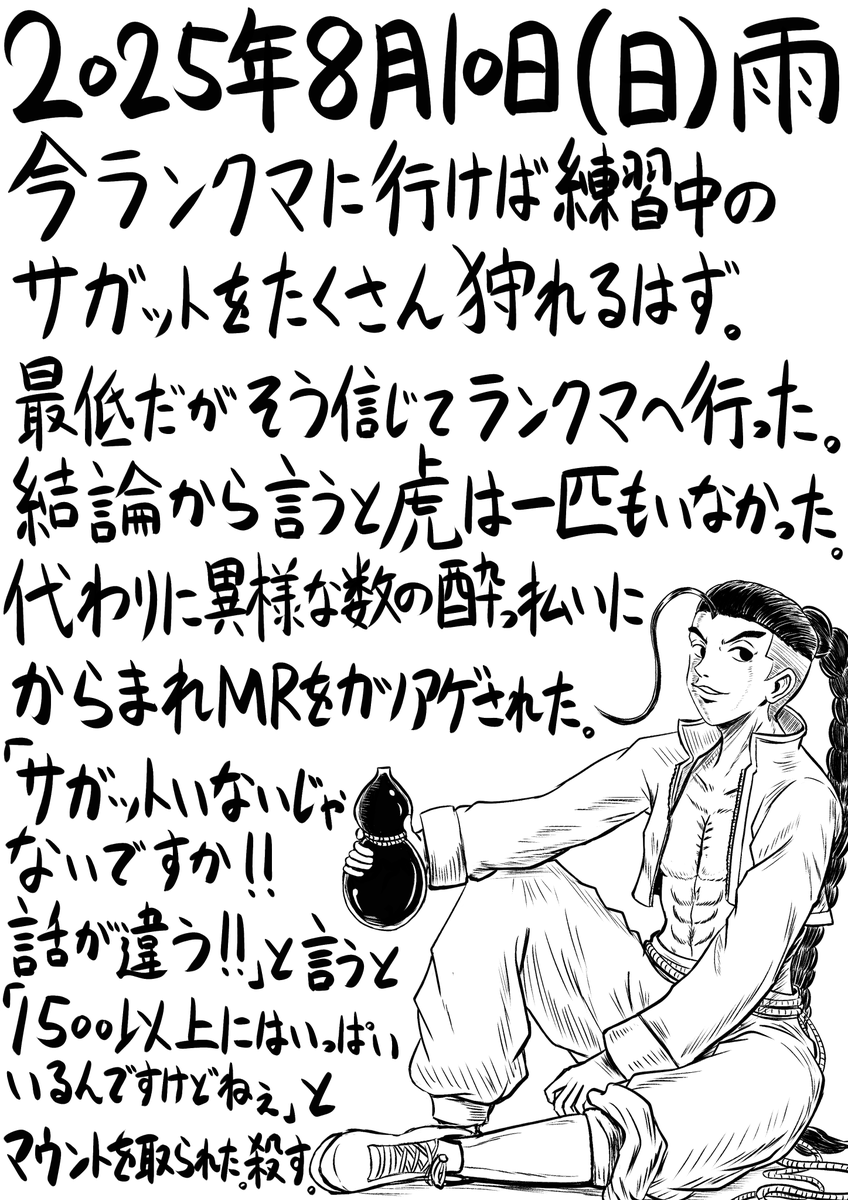 2025年8月10日(日)雨
今ランクマに行けば練習中の
サガットをたくさん狩れるはず。
最低だがそう信じてランクマへ行った。
結論から言うと虎は一匹もいなかった。
代わりに異様な数の酔っ払いに
からまれMRをカツアゲされた。
「サガットいないじゃ
ないですか!!
話が違う!!」と言うと
「1500以上にはいっぱい
いるんですけどねぇ」と
マウントを取られた。殺す。